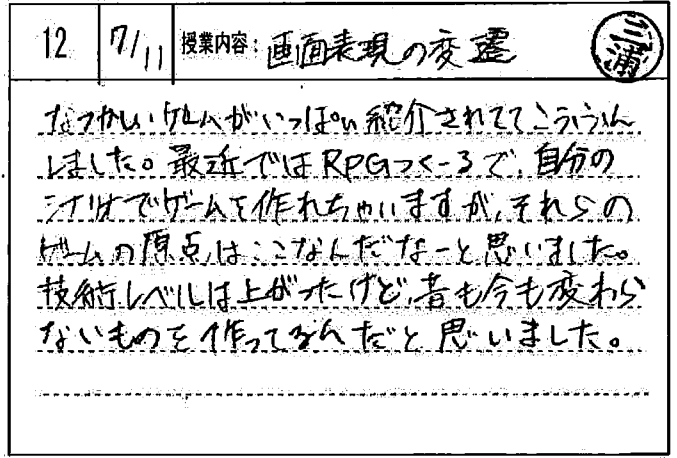 12 7/11 授業内容: 画面表現の変遷 三浦
なつかしいゲームがいっぱい紹介されててこうふん
しました。最近ではRPGつくーるで、自分の
シナリオでゲームを作れちゃいますが、それらの
ゲームの原点はここなんだなーと思いました。
技術レベルは上がったけど、昔も今も変わら
ないものを作ってるんだと思いました。